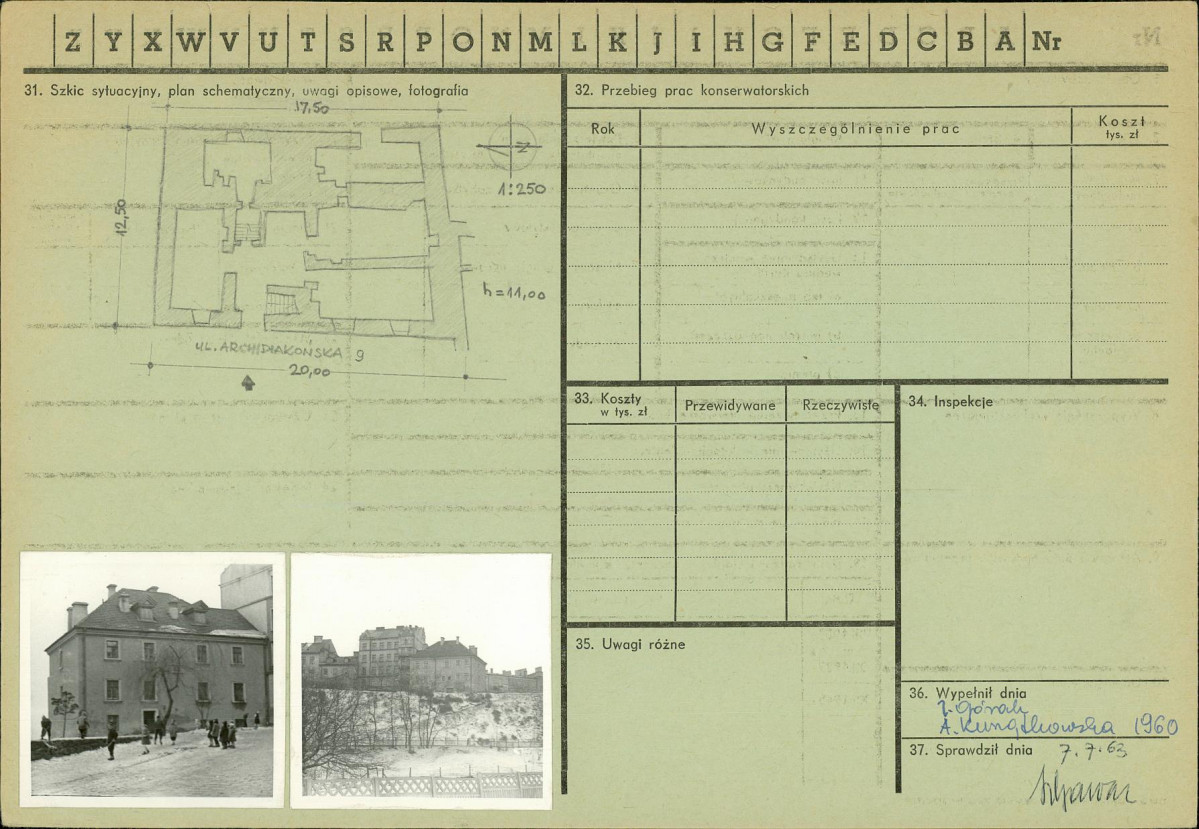 Z Y X W V U T S R P O N M L K J I H G F E D C B A Nr
31. Szkic sytuacyjny, plan schematyczny, uwagi opisowe, fotografia
17,50
12,50
N
1:250
h=11,00
UL. ARCHIDIAKOŃSKA 9
20,00
32. Przebieg prac konserwatorskich
Rok
Wyszczególnienie prac
Koszt
tys. zł
33. Koszty
w tys. zł
Przewidywane
Rzeczywiste
34. Inspekcje
35. Uwagi różne
36. Wypełnił dnia
J. Górak
A. 1960
37. Sprawdził dnia 7.7.63